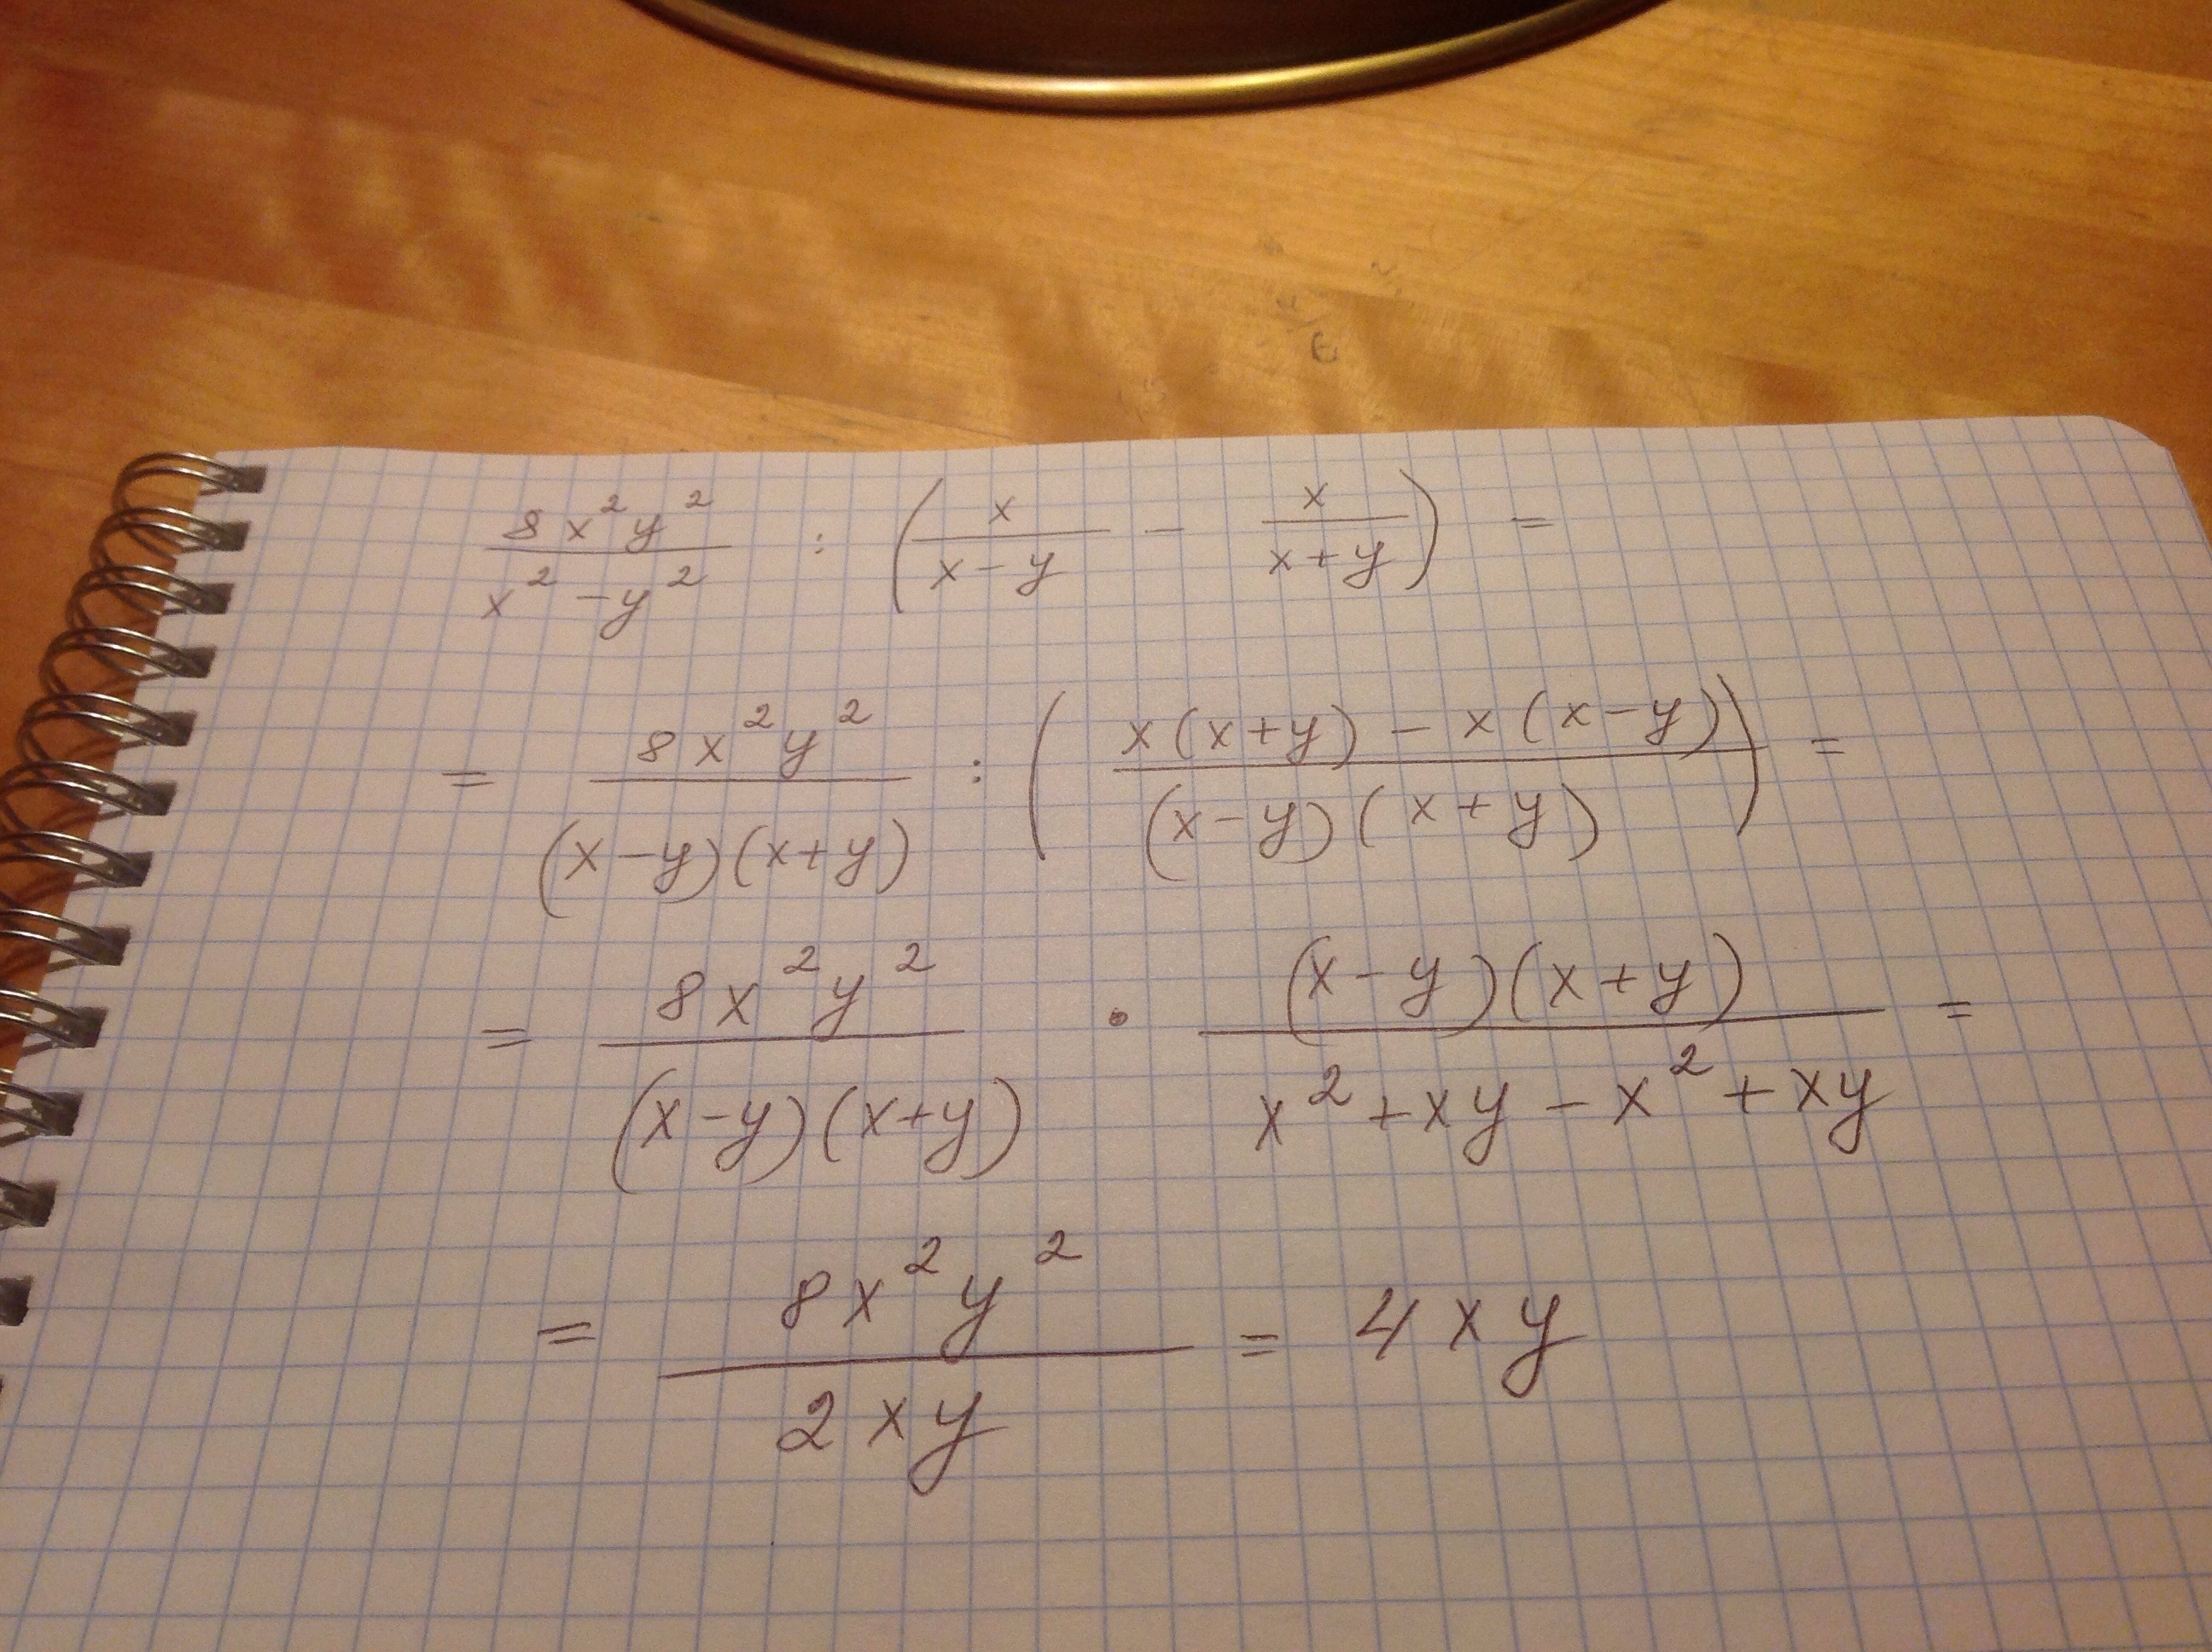 8x²y² / x² - y² : (x / x - y - x / x + y) =
= 8x²y² / (x - y)(x + y) : (x(x + y) - x(x - y) / (x - y)(x + y)) =
= 8x²y² / (x - y)(x + y) · (x - y)(x + y) / x² + xy - x² + xy =
= 8x²y² / 2xy = 4xy